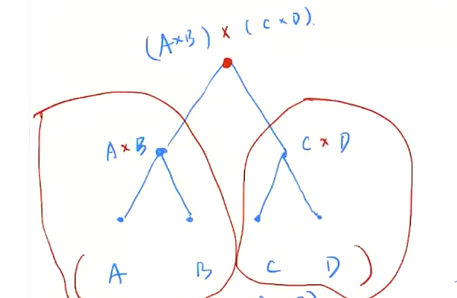 (A×B) × (C×D).
A×B C×D
( A B C D )